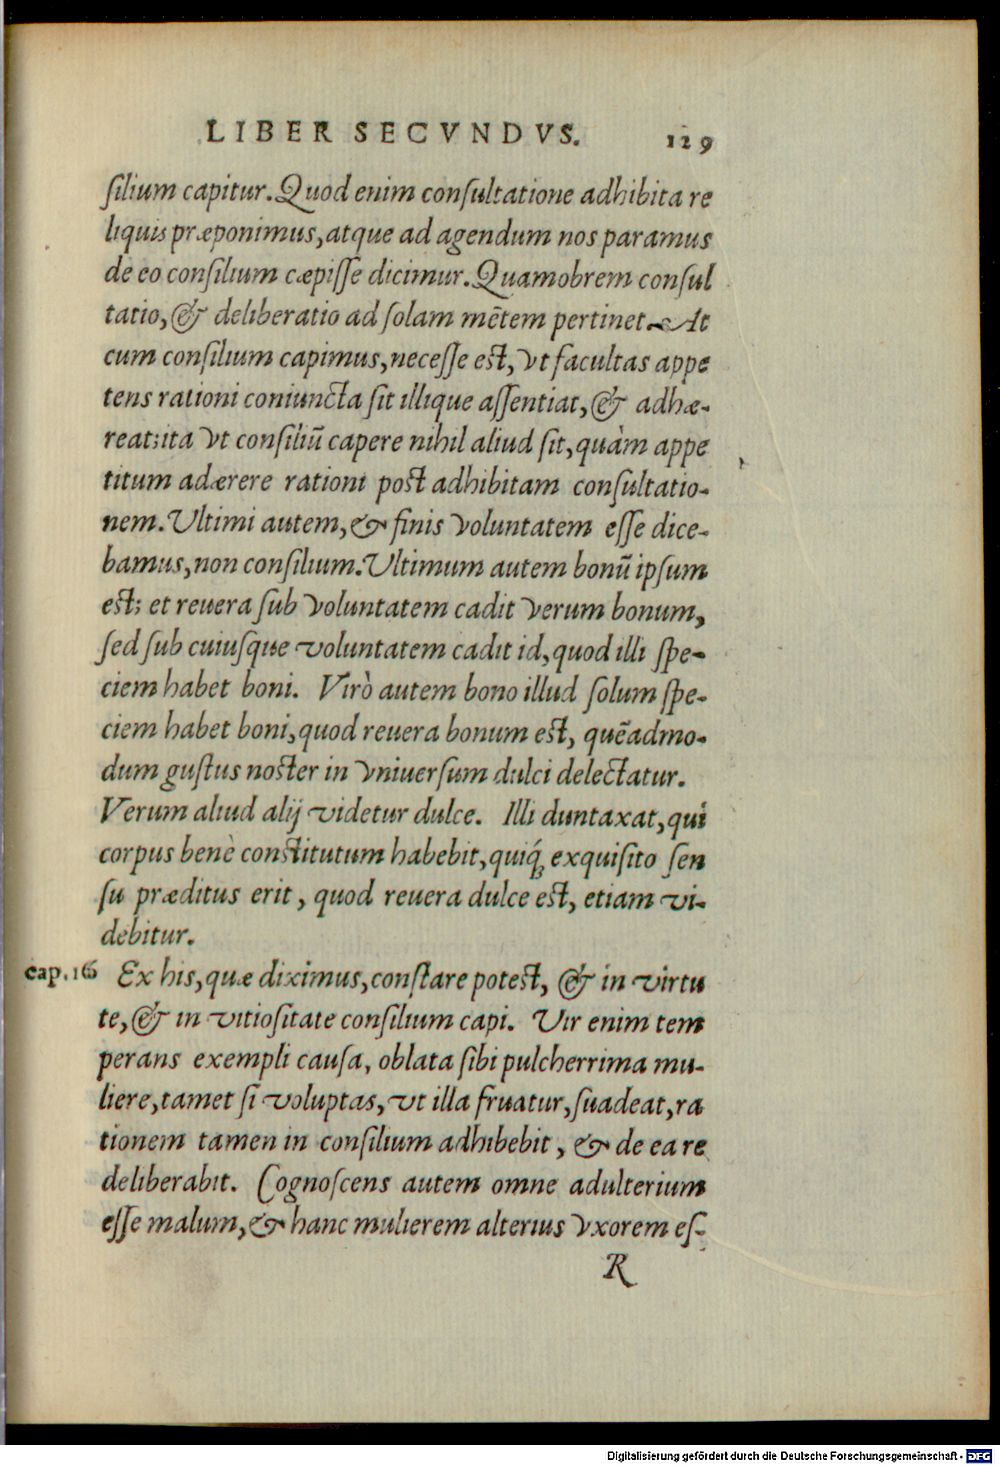 LIBER SECVNDVS. 129
silium capitur. Quod enim consultatione adhibita re
liquis præponimus, atque ad agendum nos paramus
de eo consilium cæpisse dicimur. Quamobrem consul
tatio, & deliberatio ad solam mētem pertinet. At
cum consilium capimus, necesse est, vt facultas appe
tens rationi coniuncta sit illique assentiat, & adhæ-
reat; ita vt consiliū capere nihil aliud sit, quàm appe
titum adærere rationi post adhibitam consultatio-
nem. Vltimi autem, & finis voluntatem esse dice-
bamus, non consilium. Vltimum autem bonū ipsum
est; et reuera sub voluntatem cadit verum bonum,
sed sub cuiusque voluntatem cadit id, quod illi spe-
ciem habet boni. Virò autem bono illud solum spe-
ciem habet boni, quod reuera bonum est, quēadmo-
dum gustus noster in vniuersum dulci delectatur.
Verum aliud alij videtur dulce. Illi duntaxat, qui
corpus benè constitutum habebit, quiq́ꝫ exquisito sen
su præditus erit, quod reuera dulce est, etiam vi-
debitur.
cap. 16 Ex his, quæ diximus, constare potest, & in virtu
te, & in vitiositate consilium capi. Vir enim tem
perans exempli causa, oblata sibi pulcherrima mu-
liere, tamet si voluptas, vt illa fruatur, suadeat, ra
tionem tamen in consilium adhibebit, & de ea re
deliberabit. Cognoscens autem omne adulterium
esse malum, & hanc mulierem alterius vxorem es-
R
Digitalisierung gefördert durch die Deutsche Forschungsgemeinschaft - DFG